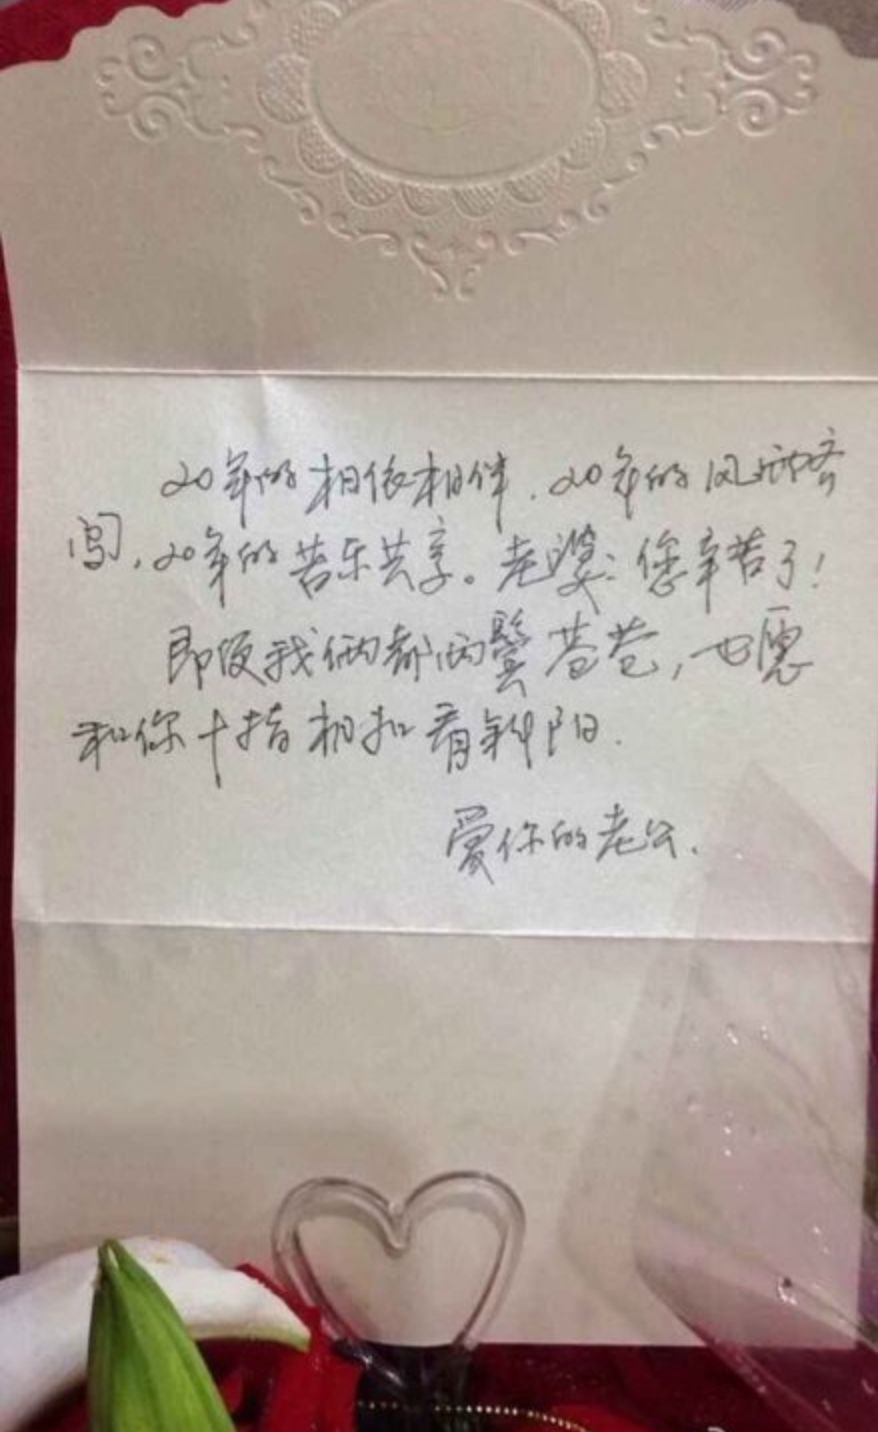 20年的相依相伴，20年的风雨齐
闯，20年的苦乐共享。老婆：您辛苦了！
即便我俩都两鬓苍苍，也愿
和你十指相扣看斜阳.
爱你的老公.